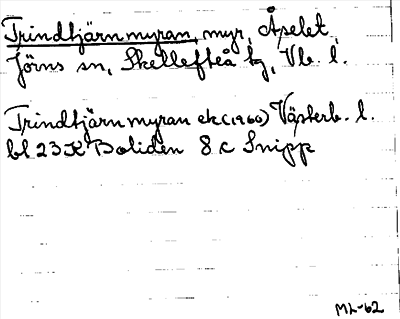 Trindtjärnmyran, myr, Åselet,
Jörns sn, Skellefteå tg, Vb. l.
Trindtjärnmyran ek (1960) Västerb. l.
bl 23K Boliden 8c Snipp
ML-62